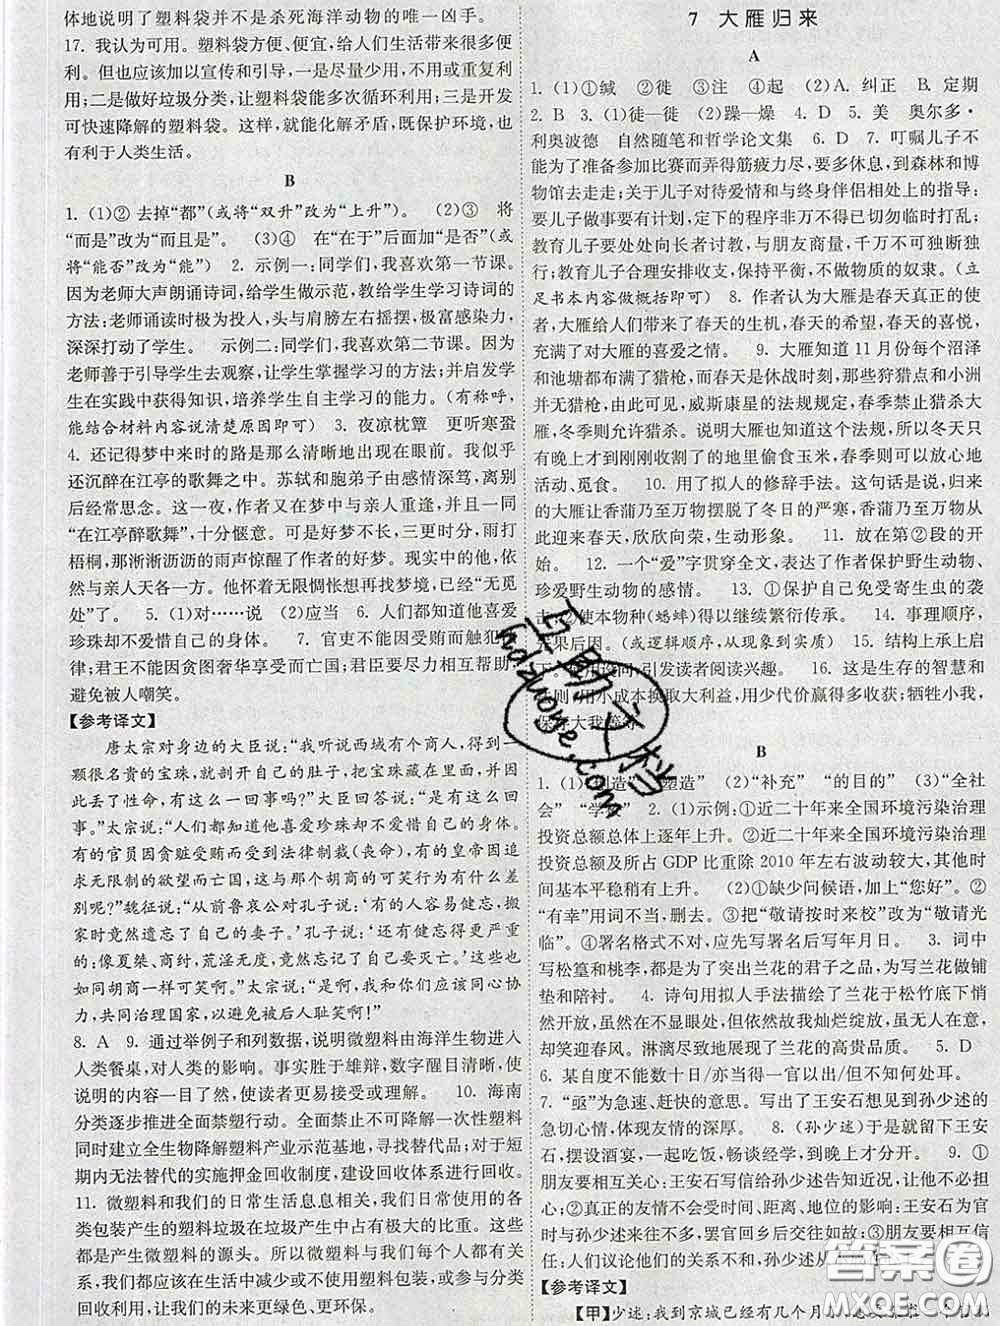 体地说明了塑料袋并不是杀死海洋动物的唯一凶手。
17. 我认为可用。塑料袋方便、便宜,给人们生活带来很多便
利。但也应该加以宣传和引导,一是尽量少用,不用或重复利
用;二是做好垃圾分类,让塑料袋能多次循环利用;三是开发
可快速降解的塑料袋。这样,就能化解矛盾,既保护环境,也
有利于人类生活。
B
1. (1)② 去掉“都”(或将“双升”改为“上升”)。 (2)③ 将
“而是”改为“而且是”。 (3)④ 在“在于”后面加“是否”(或
将“能否”改为“能”) 2. 示例一:同学们,我喜欢第一节课。
因为老师大声朗诵诗词,给学生做示范,教给学生学习诗词的
方法;老师诵读时极为投入,头与肩膀左右摇摆,极富感染力,
深深打动了学生。 示例二:同学们,我喜欢第二节课。因为
老师善于引导学生去观察,让学生掌握学习的方法;并启发学
生在实践中获得知识,培养学生自主学习的能力。(有称呼,
能结合材料内容说清楚原因即可) 3. 夜凉枕簟 更听寒蛩
4. 还记得梦中来时的路是那么清晰地出现在眼前。我似乎
还沉醉在江亭的歌舞之中。苏轼和胞弟子由感情深笃,离别
后经常思念。这一夜,作者又在梦中与亲人重逢,并一同
“在江亭醉歌舞”,十分惬意。可是好梦不长,三更时分,雨打
梧桐,那淅淅沥沥的雨声惊醒了作者的好梦。现实中的他,依
然与亲人天各一方。他怀着无限惆怅想再找梦境,已经“无觅
处”了。 5. (1)对……说 (2)应当 6. 人们都知道他喜爱
珍珠却不爱惜自己的身体。 7. 官吏不能因受贿而触犯法
律;君王不能因贪图奢华享受而亡国;君臣要尽力相互帮助,
避免被人嘲笑。
【参考译文】
唐太宗对身边的大臣说:“我听说西域有个商人,得到一
颗很名贵的宝珠,就剖开自己的肚子,把宝珠藏在里面,并且
因此丢了性命,有这么一回事吗?”大臣回答说:“是有这么回
事。”太宗说:“人们都知道他喜爱珍珠却不爱惜自己的身体。
有的官员因贪赃受贿而受到法律制裁(丧命),有的皇帝因追
求无限制的欲望而亡国,这些与那个胡商的可笑行为有什么
差别呢?”魏征说:“从前鲁哀公对孔子说:‘有的人容易健忘,
搬家时竟然遗忘了自己的妻子。’孔子说:‘还有健忘得更严
重的:像夏桀、商纣,荒淫无度,竟然忘记了自己要灭亡。’这些也
如同胡商一样可笑啊。”太宗说:“是啊,我和你们应该同心协
力,共同治理国家,以避免被后人耻笑啊!”
8. A 9. 通过举例子和列数据,说明微塑料由海洋生物进入
人类餐桌,对人类的影响。事实胜于雄辩,数字醒目清晰,使
说明的内容一目了然,使读者更易接受或理解。 10. 海南
分类逐步推进全面禁塑行动。全面禁止不可降解一次性塑料
同时建立全生物降解塑料产业示范基地,寻找替代品;对于短
期内无法替代的实施押金回收制度,建立回收体系进行回收。
11. 微塑料和我们的日常生活息息相关,我们日常使用的各
类包装产生的塑料垃圾在垃圾产生中占有很大的比重。这些
都是产生微塑料的源头。所以微塑料与我们每个人有关,我
们都应该在生活中减少或不适用塑料包装,或参与分类
回收利用,让我们的未来更绿色、更环保。
7 大雁归来
A
1. (1)①缄 ②徙 ③注 ④起 (2)A. 纠正 B. 定期
2. B 3. (1)徒—徙 (2)躁—燥 4. D 5. 美 奥尔多·
利奥波德 自然随笔和哲学论文集 6. D 7. 叮嘱儿子不
能为了准备参加比赛而弄得筋疲力尽,要多休息,到森林和博
物馆去走走;关于儿子对待爱情和与终身伴侣相处上的指导;
要儿子做事要有计划,定下的程序非万不得已切勿临时打乱;
教育儿子要处处向长者讨教,与朋友商量,千万不可独断独
行;教育儿子合理安排收支,保持平衡,不做物质的奴隶。(立
足书本内容做概括即可) 8. 作者认为大雁是春天真正的使
者,大雁给人们带来了春天的生机,春天的希望,春天的喜悦,
充满了对大雁的喜爱之情。 9. 大雁知道11月份每个沼泽
和池塘都布满了猎枪,而春天是休战时刻,那些狩猎点和小洲
并无猎枪,由此可见,威斯康星的法规规定,春季禁止猎杀大
雁,冬季则允许猎杀。说明大雁知道这个法规,所以冬天只
有晚上才到刚刚收割了的地里偷食玉米,春季则可以放心地
活动、觅食。 10. 用了拟人的修辞手法。这句话是说,归来
的大雁让香蒲乃至万物摆脱了冬日的严寒,香蒲乃至万物从
此迎来春天,欣欣向荣,生动形象。 11. 放在第②段的开
始。 12. 一个“爱”字贯穿全文,表达了作者保护野生动物、
珍爱野生动物的感情。 13. ①保护自己免受寄生虫的袭
击;②使本物种(蟋蟀)得以继续繁衍传承。 14. 事理顺序,
先果后因。(或逻辑顺序,从现象到实质) 15. 结构上承上启
下。设问,引发读者阅读兴趣。 16. 这是生存的智慧和
法则,用小成本换取大利益,用少代价赢得多收获;牺牲小我,
保存大我等等。
B
1. (1)“创造” “塑造” (2)“补充” “的目的” (3)“全社
会” “学校” 2. (1)示例:①近二十年来全国环境污染治理
投资总额总体上逐年上升。②近二十年来全国环境污染治理
投资总额及所占GDP比重除2010年左右波动较大,其他时
间基本平稳稍有上升。 (2)①缺少问候语,加上“您好”。②
“有幸”用词不当,删去。③把“敬请按时来校”改为“敬请光
临”。④署名格式不对,应先写署名后写年月日。 3. 词中
写松篁和桃李,都是为了突出兰花的君子之品,为写兰花做铺
垫和陪衬。 4. 诗句用拟人手法描绘了兰花于松竹底下悄
然开放,虽然在不显眼处,但依然故我灿烂绽放,虽无人在意,
却笑迎春风。淋漓尽致地展现了兰花的高贵品质。 5. D
6. 某自度不能数十日/亦当得一官以出/但不知何处耳。
7. “亟”为急速、赶快的意思。写出了王安石想见到孙少述的
急切心情,体现友情的深厚。 8. (孙少述)于是就留下王安
石,摆设酒宴,一起吃饭,畅谈经学,到晚上才分开。 9. ①
朋友要相互关心:王安石写信给孙少述告知近况,让他不必担
心;②真正的友情不会受时间、距离、地位的影响:王安石为官
时与孙少述来往不多,罢官回乡后交往如故;③朋友要相互信
任:人们议论他们的关系不和,孙少述从
【参考译文】
【甲】少述:我到京城已经有几个月
互助文档
hdzuoye.com
答案圈
MXQE.COM